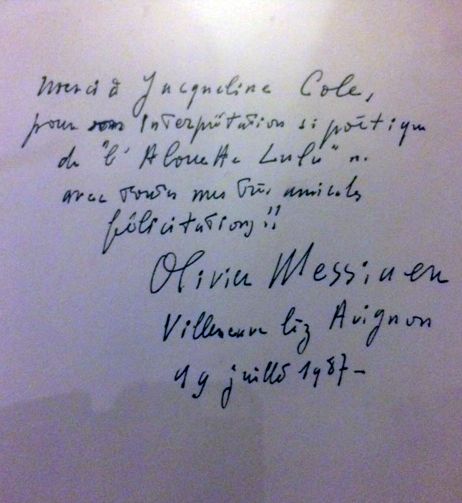 merci à Jacqueline Cole,
pour son interprétation si poétique
de "l'Alouette Lulu"
avec toutes mes très amicales
félicitations!!
Olivier Messiaen
Villeneuve lèz Avignon
19 juillet 1987-